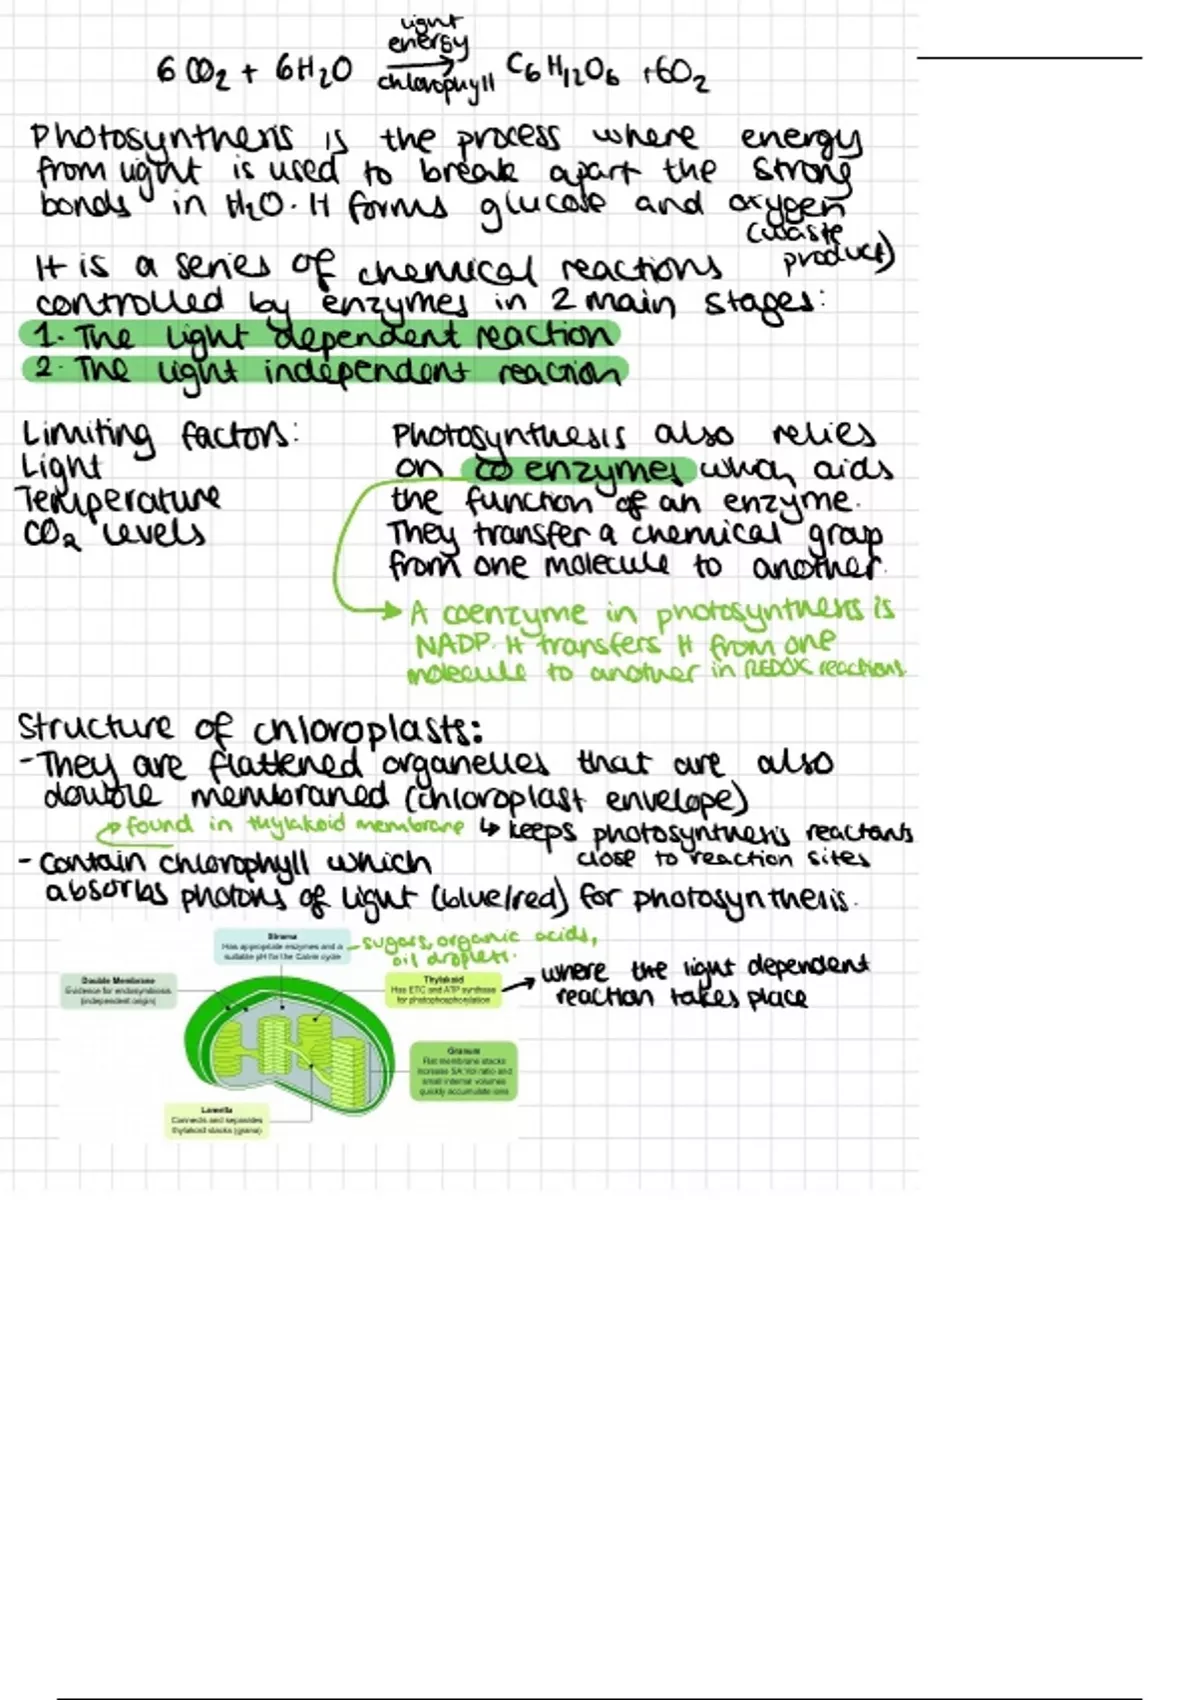 light
energy
6CO₂ + 6H₂O → C₆H₁₂O₆ + 6O₂
chlorophyll
Photosynthesis is the process where energy
from light is used to break apart the strong
bonds in H₂O. H forms glucose and oxygen
(waste
product)
It is a series of chemical reactions
controlled by enzymes in 2 main stages:
1. The light dependent reaction
2. The light independent reaction
Limiting factors:
Light
Temperature
CO₂ levels
Photosynthesis also relies
on co enzymes which aids
the function of an enzyme.
They transfer a chemical group
from one molecule to another.
A coenzyme in photosynthesis is
NADP. It transfers H from one
molecule to another in REDOX reactions.
Structure of chloroplasts:
- They are flattened organelles that are also
double membraned (chloroplast envelope)
found in thylakoid membrane ↳ keeps photosynthesis reactants
close to reaction sites
- contain chlorophyll which
absorbs photons of light (blue/red) for photosynthesis.
Stroma
Has appropriate enzymes and a
suitable pH for the Calvin cycle
- sugars, organic acids,
oil droplets.
Double Membrane
Evidence for endosymbiosis
(independent origin)
Thylakoid
Has ETC and ATP synthase
for photophosphorylation
→ where the light dependent
reaction takes place
Granum
Flat membrane stacks
increase SA:Vol ratio and
small internal volumes
quickly accumulate ions
Lamella
Connects and separates
thylakoid stacks (grana)